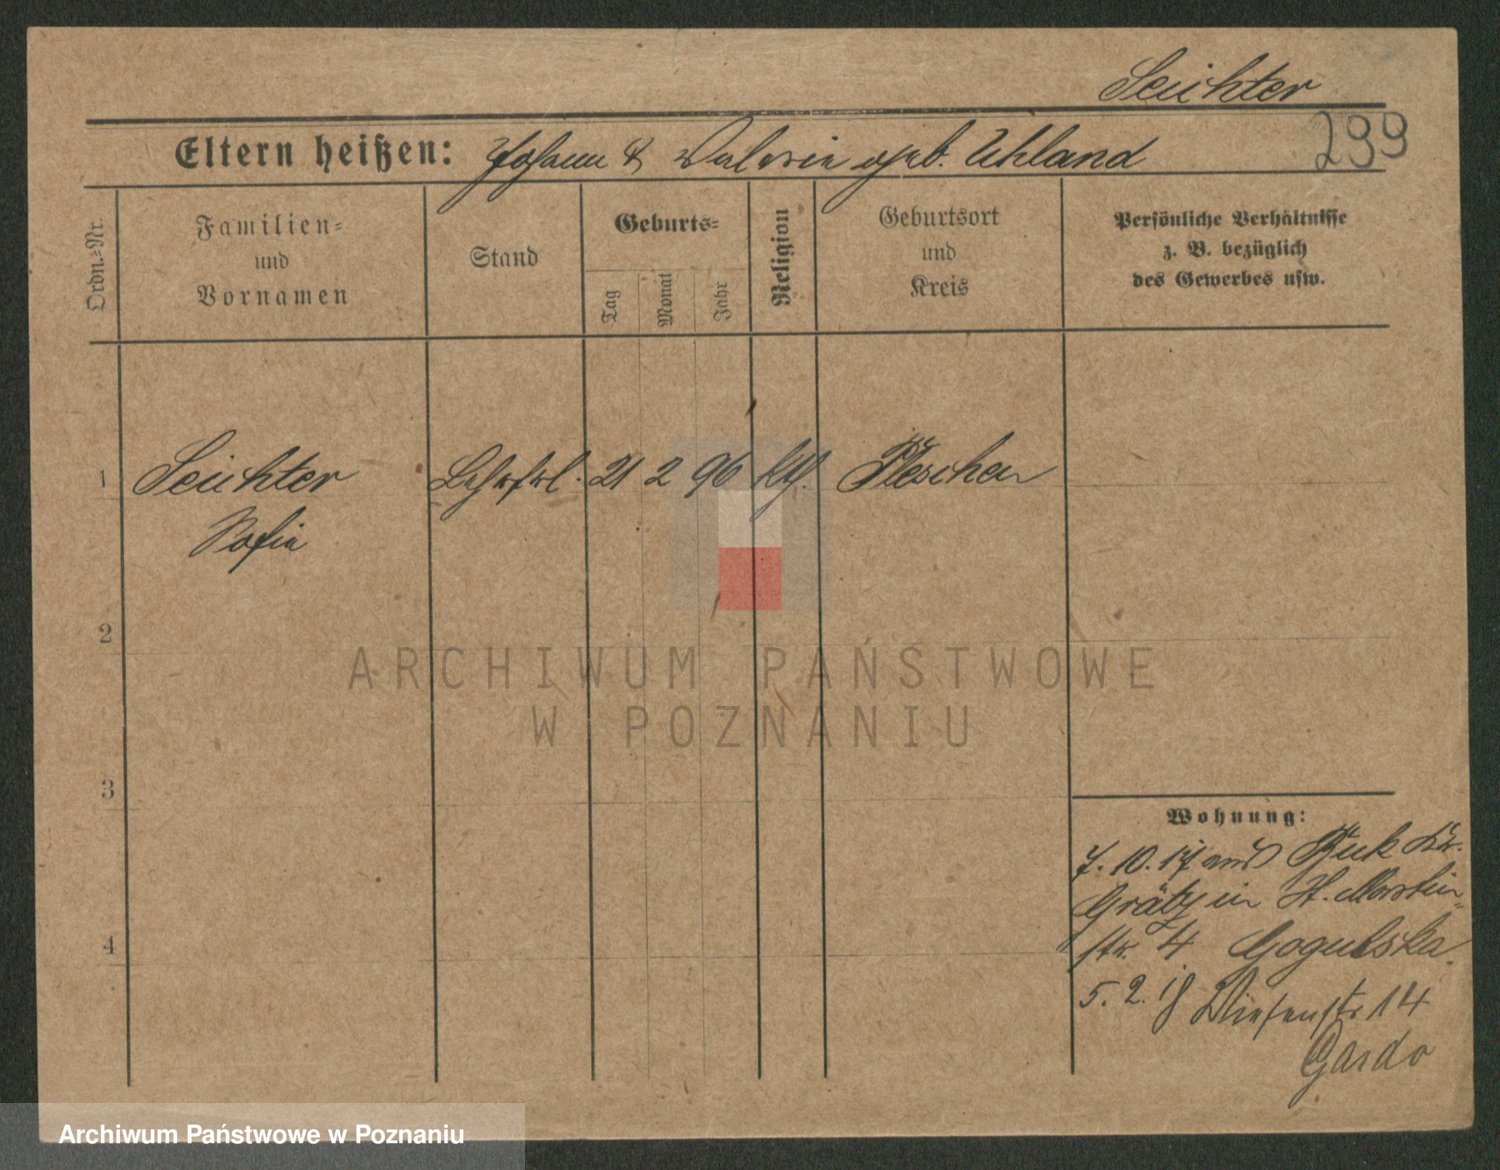 Seichter
299
Eltern heißen: Johann & Valerie geb. Uhland
Ordn.-Nr.
Familien-
und
Vornamen
Stand
Geburts-
Tag
Monat
Jahr
Religion
Geburtsort
und
Kreis
Persönliche Verhältnisse
z. B. bezüglich
des Gewerbes usw.
1 Seichter 21 2 96 kth. Pleschen
Sofie
2
3
4
Wohnung:
7. 10. 17 aus Buk Kr.
Grätz in St. Martin-
str. 4 Gogulska.
5. 2. 18 Wiesenstr 14
Gardo
ARCHIWUM PAŃSTWOWE
W POZNANIU
Archiwum Państwowe w Poznaniu